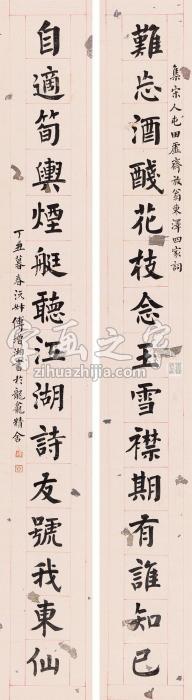 集宋人屯田虛齋放翁東澤四家詞
難忘酒醆花枝念玉雪襟期有誰知己
自適筍輿煙艇聽江湖詩友號我東仙
丁丑暮春沅叔傅增湘書於龍龕精舍
字画之家
zihuazhijia.com